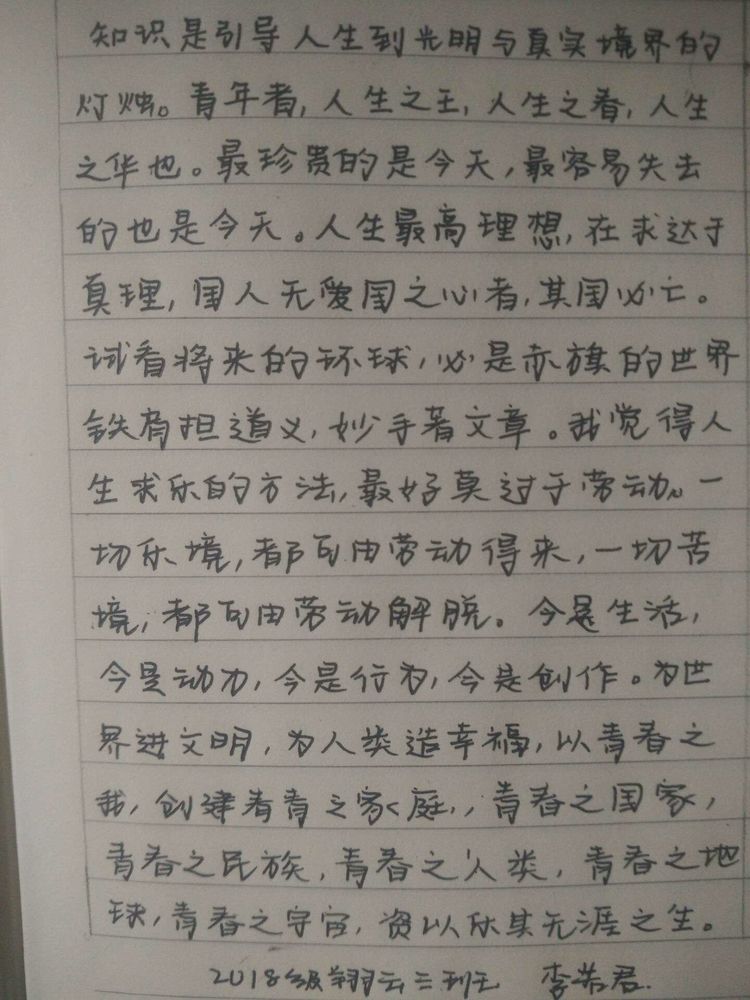 知识是引导人生到光明与真实境界的
灯烛。青年者，人生之王，人生之春，人生
之华也。最珍贵的是今天，最容易失去
的也是今天。人生最高理想，在求达于
真理，国人无爱国之心者，其国必亡。
试看将来的环球，必是赤旗的世界
铁肩担道义，妙手著文章。我觉得人
生求乐的方法，最好莫过于劳动。一
切乐境，都可由劳动得来，一切苦
境，都可由劳动解脱。今是生活，
今是动力，今是行为，今是创作。为世
界进文明，为人类造幸福，以青春之
我，创建青春之家庭，青春之国家，
青春之民族，青春之人类，青春之地
球，青春之宇宙，资以乐其无涯之生。
2018级翔云三班 李若君